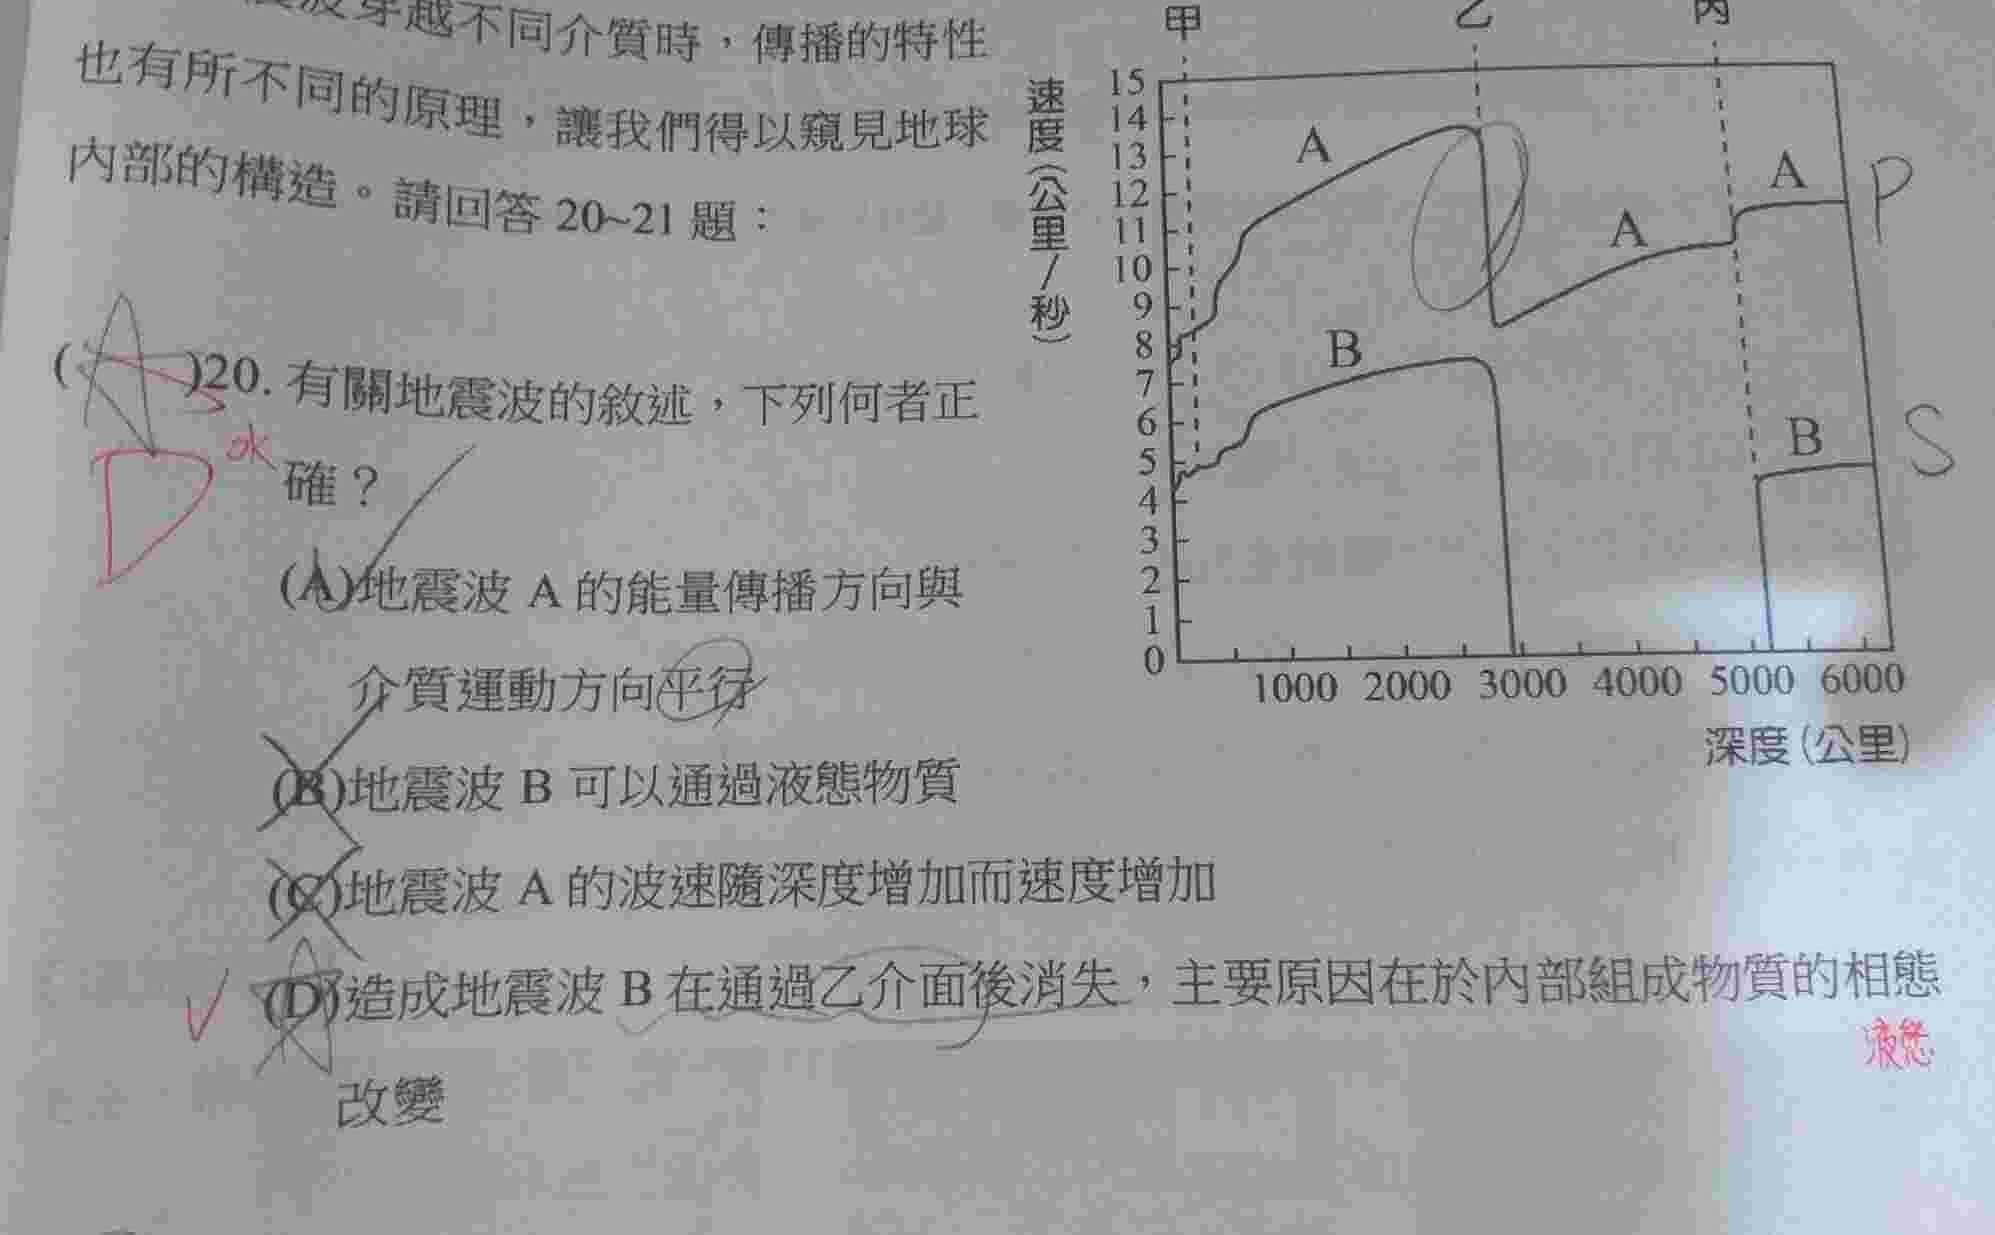 震波穿越不同介質時，傳播的特性
也有所不同的原理，讓我們得以窺見地球
內部的構造。請回答 20~21 題：
(A)20. 有關地震波的敘述，下列何者正
確？
D
ok
(A)地震波 A 的能量傳播方向與
介質運動方向平行
(B)地震波 B 可以通過液態物質
(C)地震波 A 的波速隨深度增加而速度增加
(D)造成地震波 B 在通過乙介面後消失，主要原因在於內部組成物質的相態
液態
改變
甲 乙 丙
速度(公里/秒)
15
14
13
12
11
10
9
8
7
6
5
4
3
2
1
0
A
A
A
P
B
B
S
1000 2000 3000 4000 5000 6000
深度(公里)